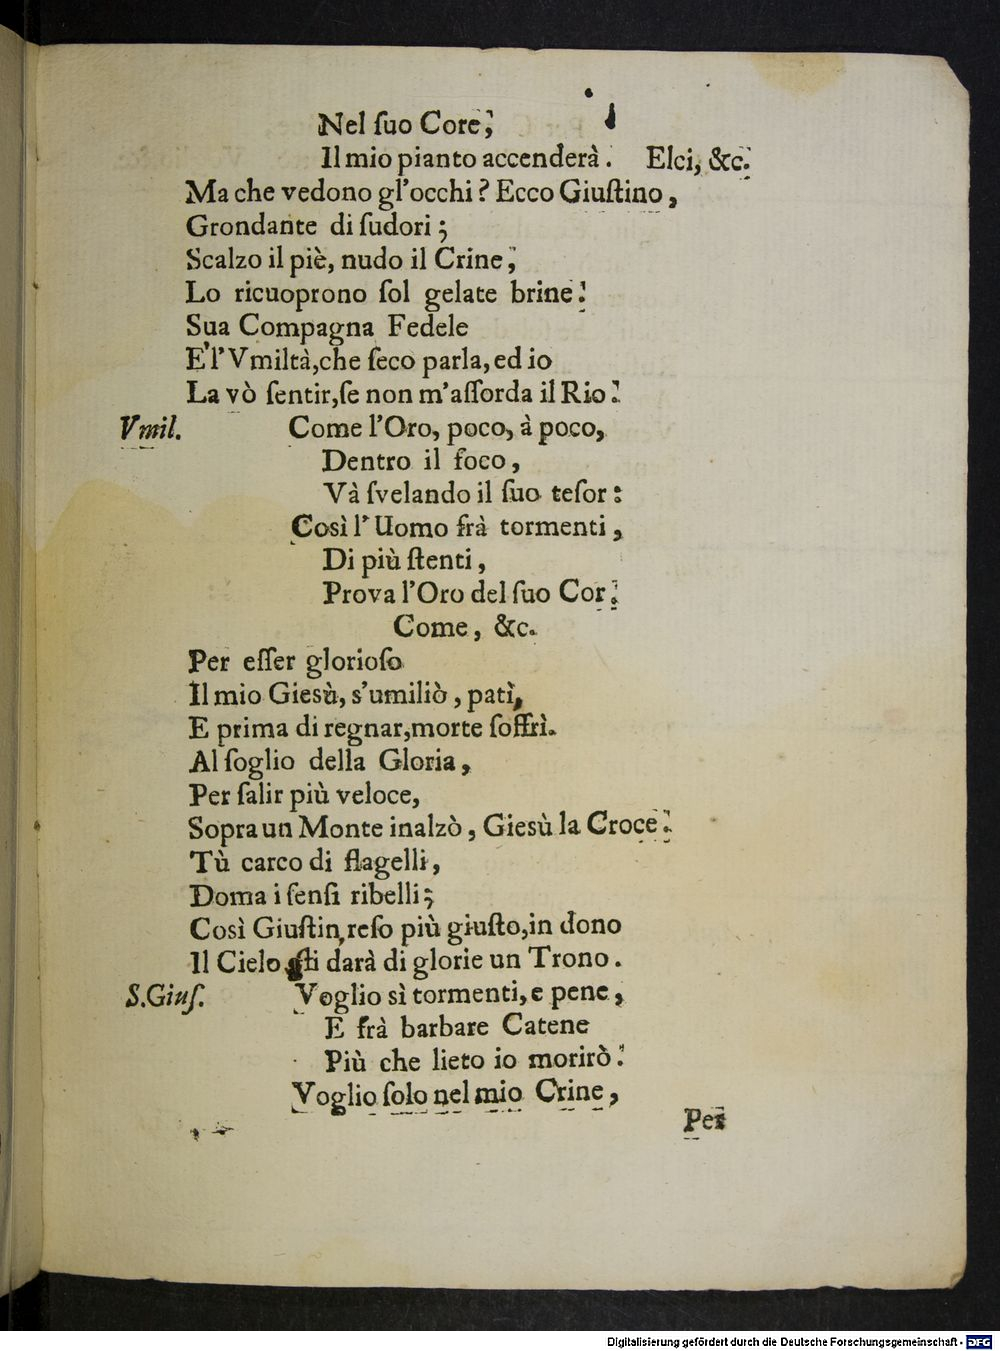 Nel ſuo Core;
Il mio pianto accenderà. Elci, &c.
Ma che vedono gl'occhi? Ecco Giuſtino,
Grondante di ſudori;
Scalzo il piè, nudo il Crine;
Lo ricuoprono ſol gelate brine.
Sua Compagna Fedele
E' l'Vmiltà, che ſeco parla, ed io
La vò ſentir, ſe non m'aſſorda il Rio.
Vmil. Come l'Oro, poco, à poco,
Dentro il foco,
Và ſvelando il ſuo teſor:
Così l'Uomo frà tormenti,
Di più ſtenti,
Prova l'Oro del ſuo Cor.
Come, &c.
Per eſſer glorioſo
Il mio Giesù, s'umiliò, patì,
E prima di regnar, morte ſoffrì.
Al ſoglio della Gloria,
Per ſalir più veloce,
Sopra un Monte inalzò, Giesù la Croce.
Tù carco di flagelli,
Doma i ſenſi ribelli;
Così Giuſtin, reſo più giuſto, in dono
Il Cielo ti darà di glorie un Trono.
S. Giuſ. Voglio sì tormenti, e pene,
E frà barbare Catene
Più che lieto io morirò.
Voglio ſolo nel mio Crine,
Per
Digitalisierung gefördert durch die Deutsche Forschungsgemeinschaft - DFG